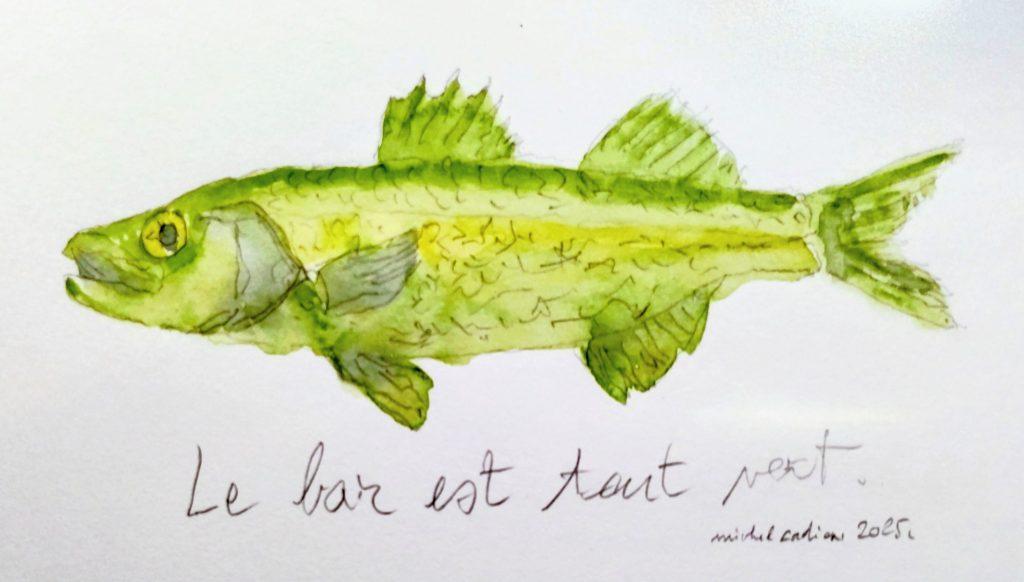 Le bar est tout vert.
michel cadiou 2025.